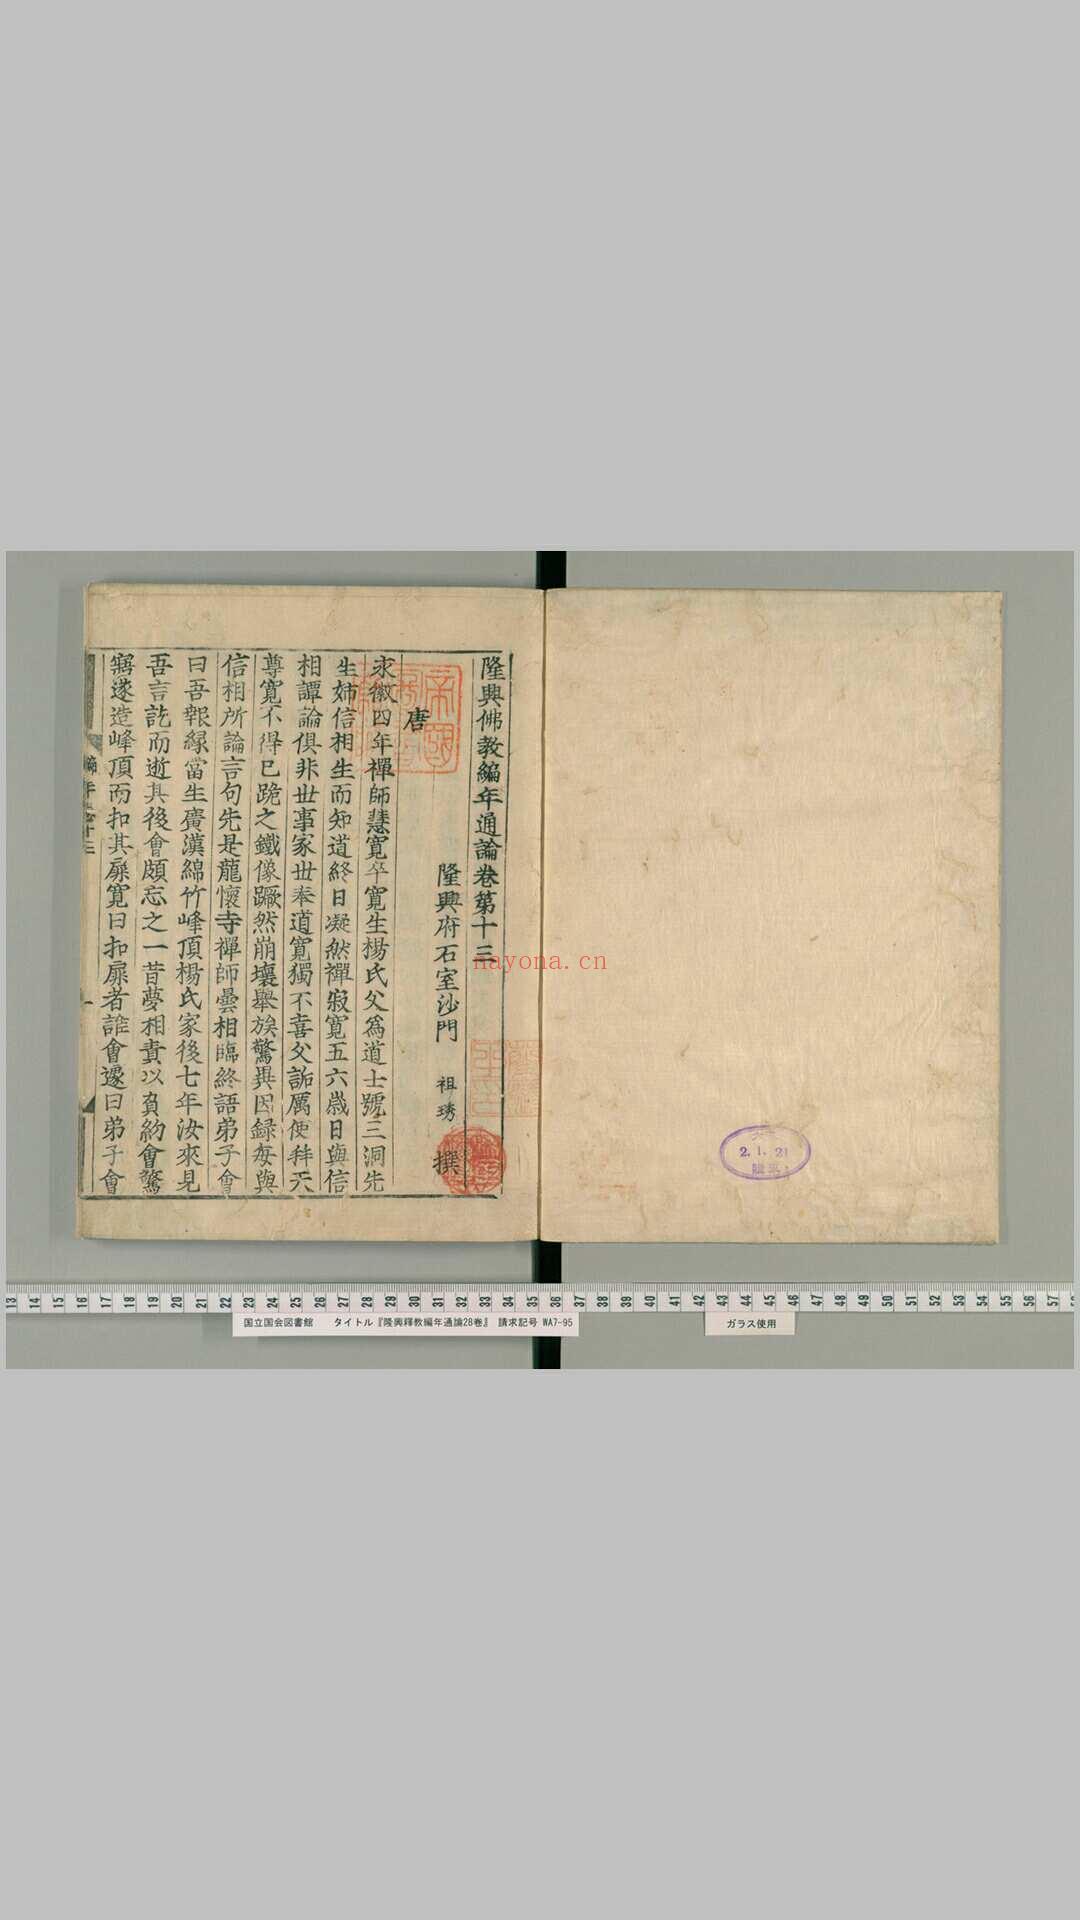 隆興佛教編年通論卷第十三
隆興府石室沙門 祖琇 撰
唐
永徽四年禪師慧寬卒寬生楊氏父爲道士號三洞先
生姉信相生而知道終日凝然禪寂寬五六歲日與信
相譚論俱非世事家世奉道寬獨不喜父詬厲使拜天
尊寬不得已跪之鐵像蹶然崩壞舉族驚異因録每與
信相所論言句先是龍懷寺禪師曇相臨終語弟子會
曰吾報緣當生廣漢綿竹峰頂楊氏家後七年汝來見
吾言訖而逝其後會頗忘之一昔夢相責以負約會驚
寤遂造峰頂而扣其扉寬曰扣扉者誰會遽曰弟子會
編年卷十三
一
nayona.cn
2. 1. 21
13 14 15 16 17 18 19 20 21 22 23 24 25 26 27 28 29 30 31 32 33 34 35 36 37 38 39 40 41 42 43 44 45 46 47 48 49 50 51 52 53 54 55 56 57
国立国会図書館 タイトル『隆興釋教編年通論28巻』 請求記号 WA7-95
ガラス使用